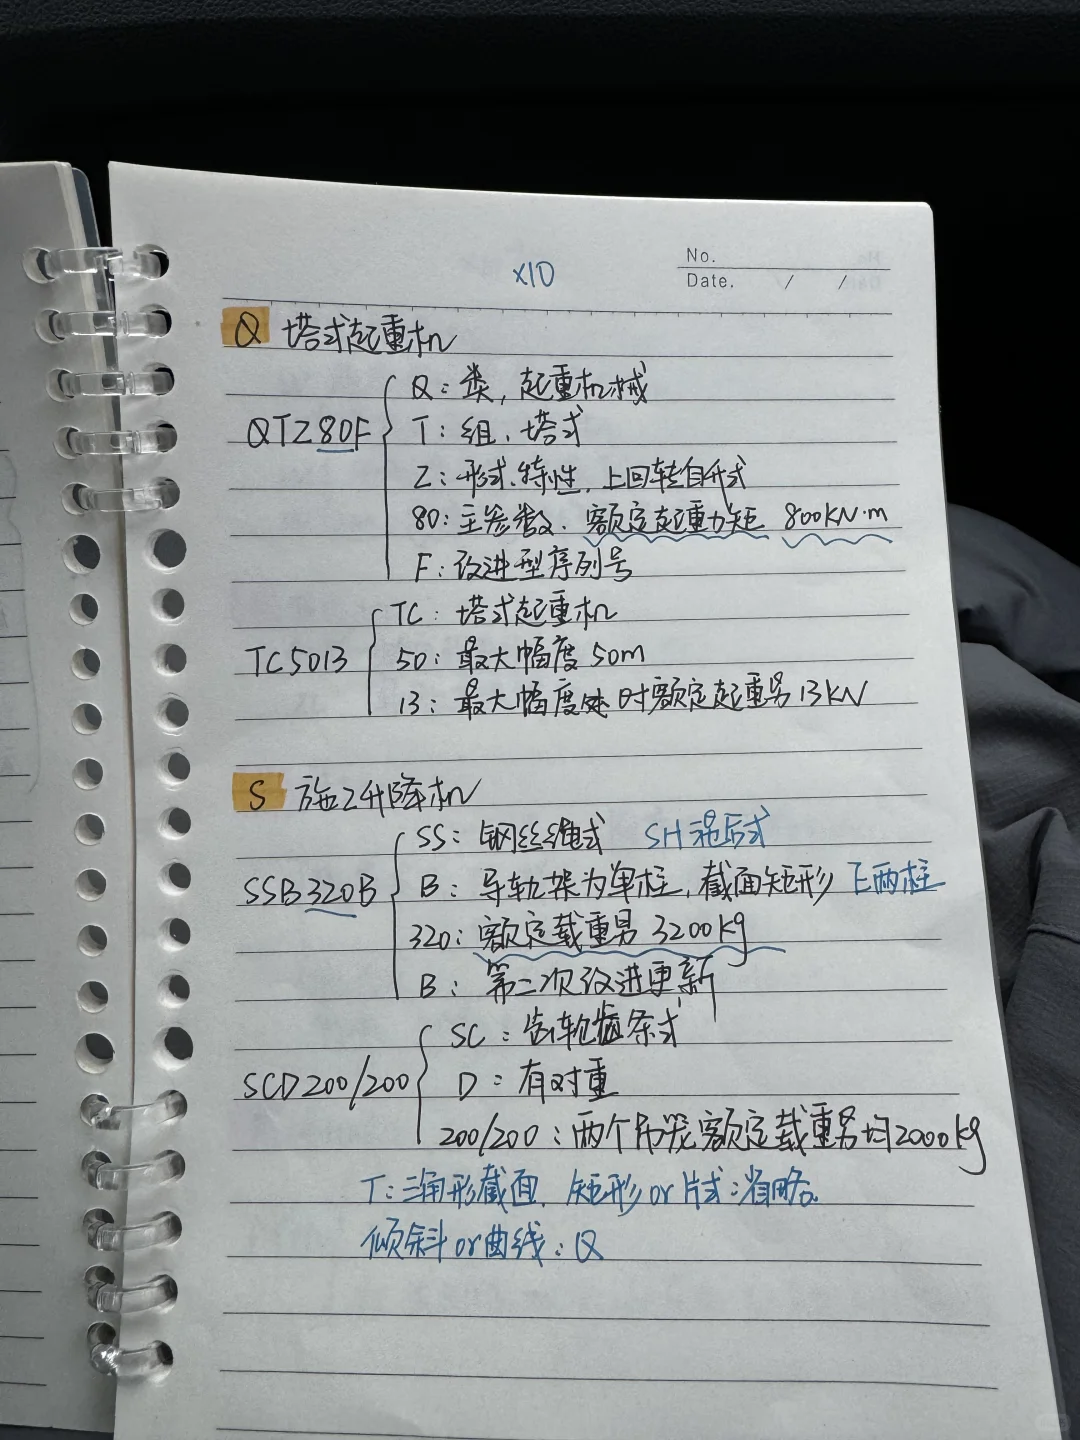 No.
Date. / /
×10
Q 塔式起重机
QTZ80F
Q:类,起重机械
T:组、塔式
Z:形式、特性,上回转自升式
80:主参数、额定起重力矩 800KN·m
F:改进型序列号
TC5013
TC:塔式起重机
50:最大幅度50m
13:最大幅度处时额定起重量13KN
S 施工升降机
SSB320B
SS:钢丝绳式 SH混合式
B:导轨架为单柱,截面矩形 E两柱
320:额定载重量3200kg
B:第二次改进更新
SCD200/200
SC:齿轮齿条式
D:有对重
200/200:两个吊笼额定载重量均2000kg
T:三角形截面,矩形or片式:省略。
倾斜or曲线:Q